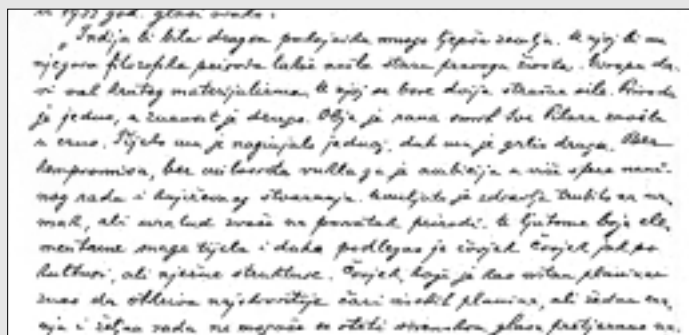 u 1933 god. glasi ovako:
„Indija bi bila dragom pokojniku mnogo ljepša zemlja. U njoj bi mu
njegova filozofska priroda lakše našla staru pravoga života. Evropu da-
vi val krutog materijalizma. U njoj se bore dvije strašne sile. Priroda
je jedno, a znanost je drugo. Obje je rana smrt Ive Pilara zavila
u crno. Tijelo mu je naginjalo jednoj, duh mu je grlio drugu. Bez
kompromisa, bez milosrđa vukla ga je ambicija u više sfere nauč-
nog rada i književnog stvaranja. Uzalud je zdravlje trubilo na uz-
mak, ali uzalud zvaše na povratak prirodi. U ljutome boju ele-
mentarne snage tijela i duha podlegao je čovjek. Čovjek jak po
kulturi, ali nježne strukture. Čovjek, koji je kao vitan planinar
znao da otkriva najskrovitije čari naših planina, ali žedan zna-
nja i željan rada ne mogaše se oteti sirenskom glasu pretjerane na-